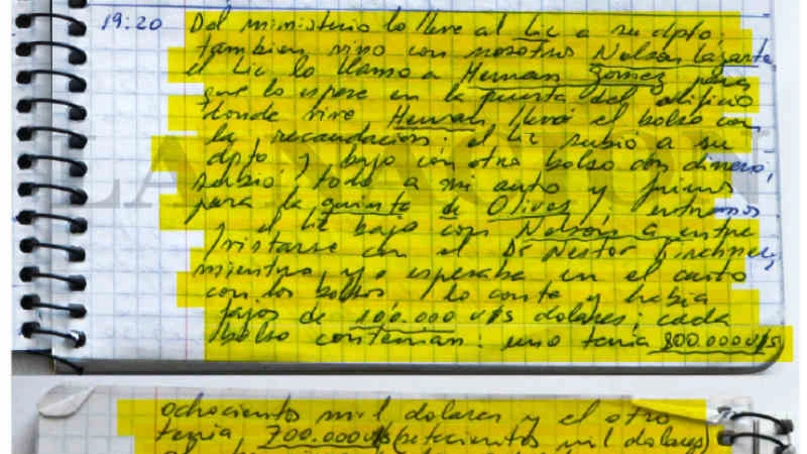 19:20 Del ministerio lo lleve al Lic a su dpto.
tambien vino con nosotros Nelson Lazarte,
el Lic. lo llamo a Hernan Gomez para
que lo espere en la puerta del edificio
donde vive Hernan llevó el bolso con
la recaudacion; el Lic subió a su
dpto y bajo con otro bolso con dinero,
subió todo a mi auto y fuimos
para la quinta de Olivos y entramos
y el Lic bajo con Nelson a entre
vistarse con el Dr Nestor Kirchner,
mientras yo esperaba en el auto
con los bolsos, lo conte y habia
fajos de 100.000 U$S dolares; cada
bolso contenian: uno tenia 800.000 U$S
ochocientos mil dolares y el otro
tenia 700.000 U$S (setecientos mil dolares)
LA NACION